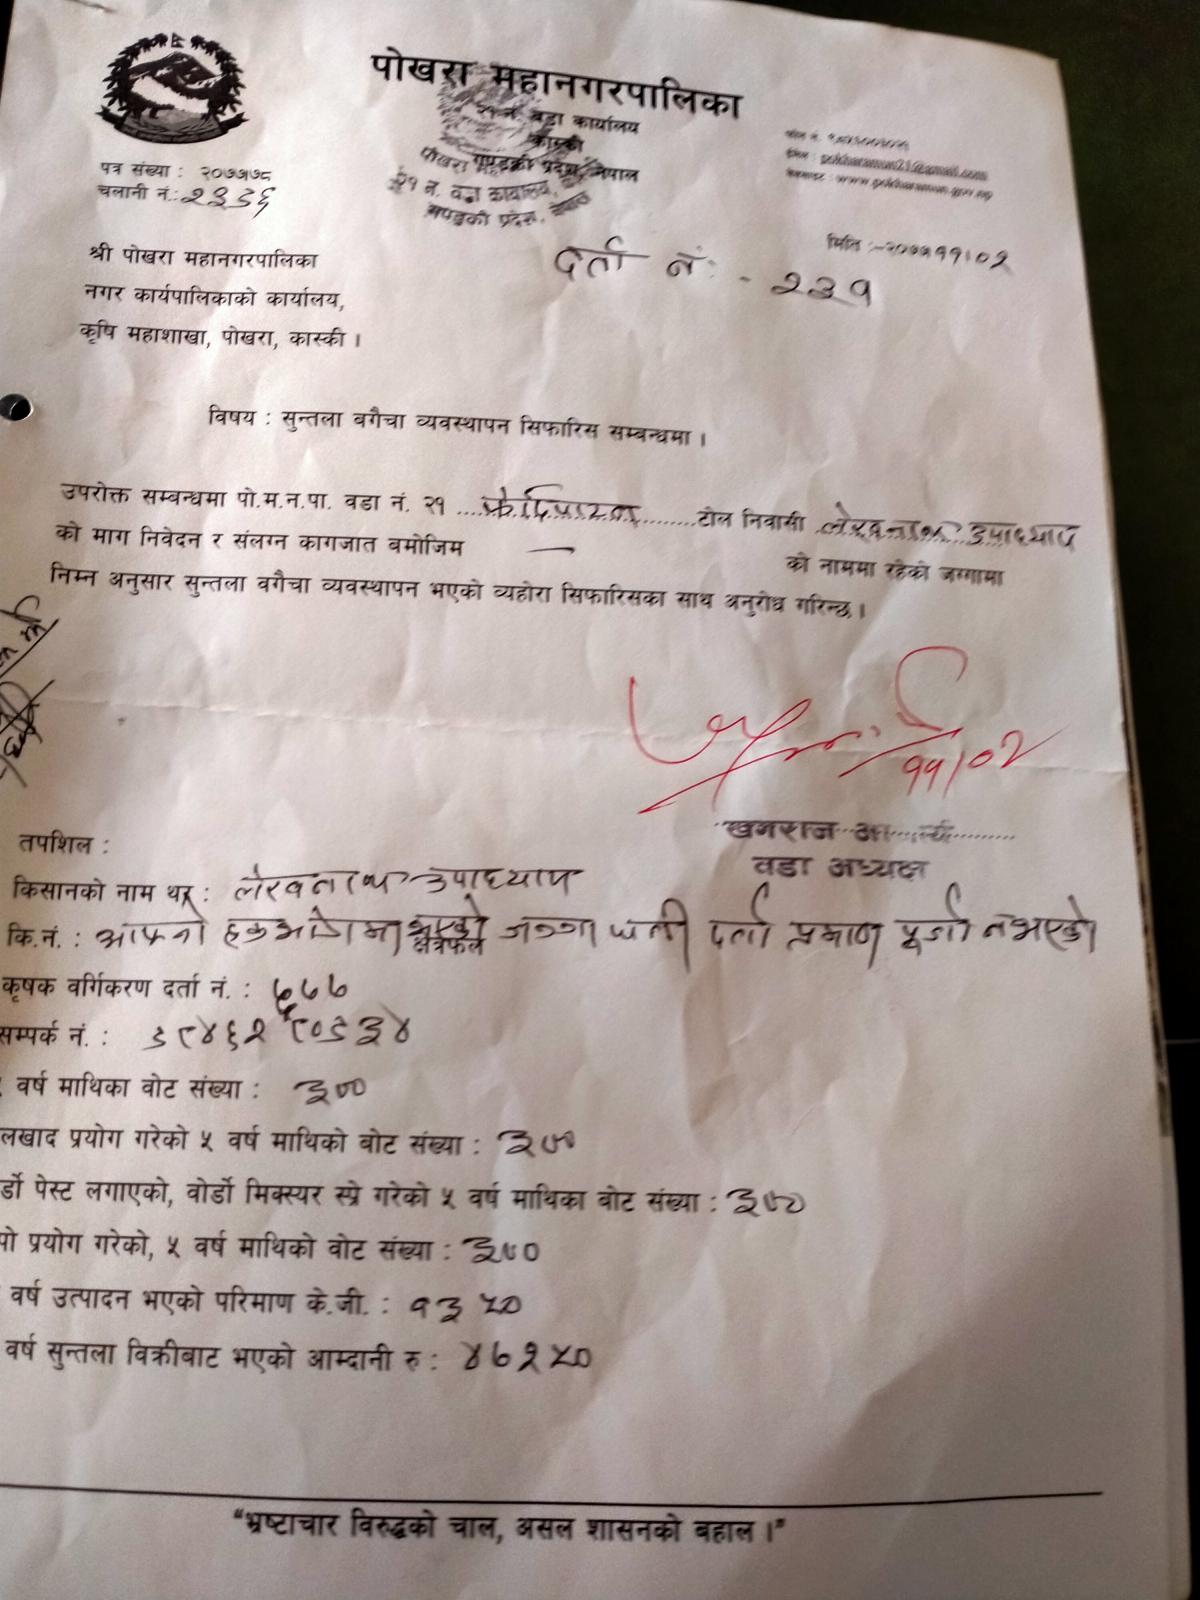 पोखरा महानगरपालिका
२१ नं. वडा कार्यालय
कास्की
गण्डकी प्रदेश, नेपाल
पोखरा
२१ नं. वडा कार्यालय,
गण्डकी प्रदेश, नेपाल
पत्र संख्या : २०७७।७८
चलानी नं.: २३८६
ईमेल : pokharamun21@gmail.com
वेबसाइट : www.pokharamun.gov.np
मिति :-२०७७।११।०२
दर्ता नं: - २३१
श्री पोखरा महानगरपालिका
नगर कार्यपालिकाको कार्यालय,
कृषि महाशाखा, पोखरा, कास्की ।
विषय : सुन्तला बगैचा व्यवस्थापन सिफारिस सम्बन्धमा ।
उपरोक्त सम्बन्धमा पो.म.न.पा. वडा नं. २१ ........ टोल निवासी लेखनाथ उपाध्याय
को माग निवेदन र संलग्न कागजात बमोजिम — को नाममा रहेको जग्गामा
निम्न अनुसार सुन्तला वगैचा व्यवस्थापन भएको व्यहोरा सिफारिसका साथ अनुरोध गरिन्छ ।
११/०२
वडा अध्यक्ष
तपशिल :
किसानको नाम थर : लेखनाथ उपाध्याय
कि.नं. : आफ्नो हकभोगमा भएको क्षेत्रफल जग्गा धनी दर्ता प्रमाण पूर्जा नभएको
कृषक वर्गिकरण दर्ता नं. : ७७७
सम्पर्क नं. :
वर्ष माथिका वोट संख्या : ३००
लखाद प्रयोग गरेको ५ वर्ष माथिको बोट संख्या : ३००
र्डो पेस्ट लगाएको, वोर्डो मिक्स्चर स्प्रे गरेको ५ वर्ष माथिका बोट संख्या : ३००
पो प्रयोग गरेको, ५ वर्ष माथिको वोट संख्या : ३००
वर्ष उत्पादन भएको परिमाण के.जी. : १३५०
वर्ष सुन्तला विक्रीबाट भएको आम्दानी रु : ४७२५०
“भ्रष्टाचार विरुद्धको चाल, असल शासनको बहाल ।”